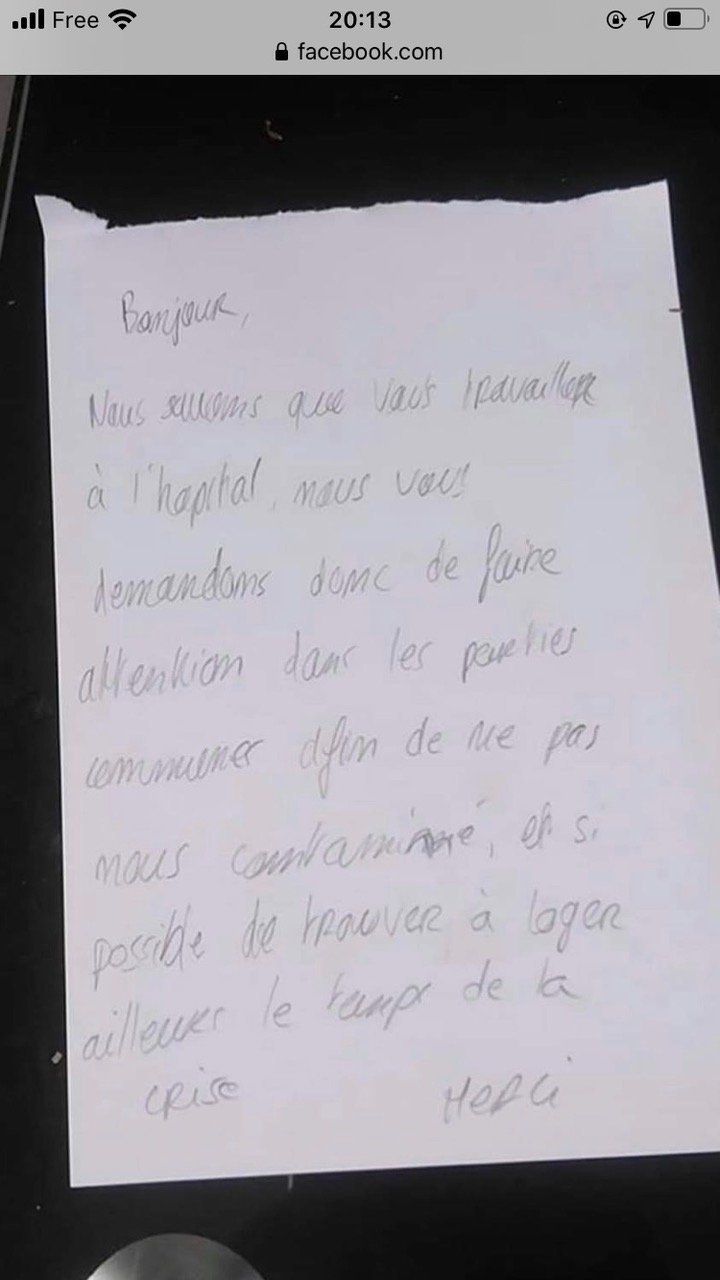 Free
20:13
facebook.com
Bonjour,
Nous savons que vous travaillez
à l'hopital, nous vous
demandons donc de faire
attention dans les parties
communes afin de ne pas
nous contaminé, et si
possible de trouver à loger
ailleurs le temps de la
crise Merci